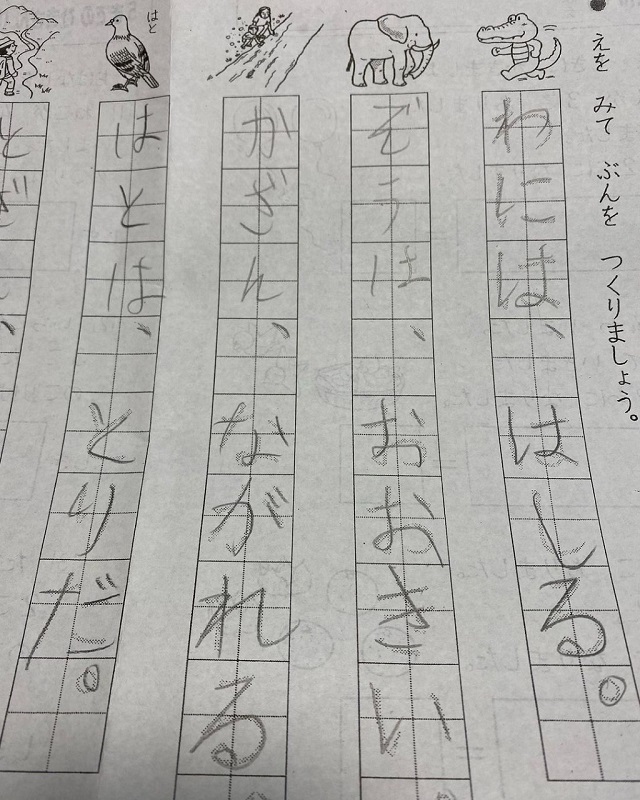 えを みて ぶんを つくりましょう。
わには、はしる。
ぞうは、おおきい
かざん、ながれる
はと
はとは、とりだ。